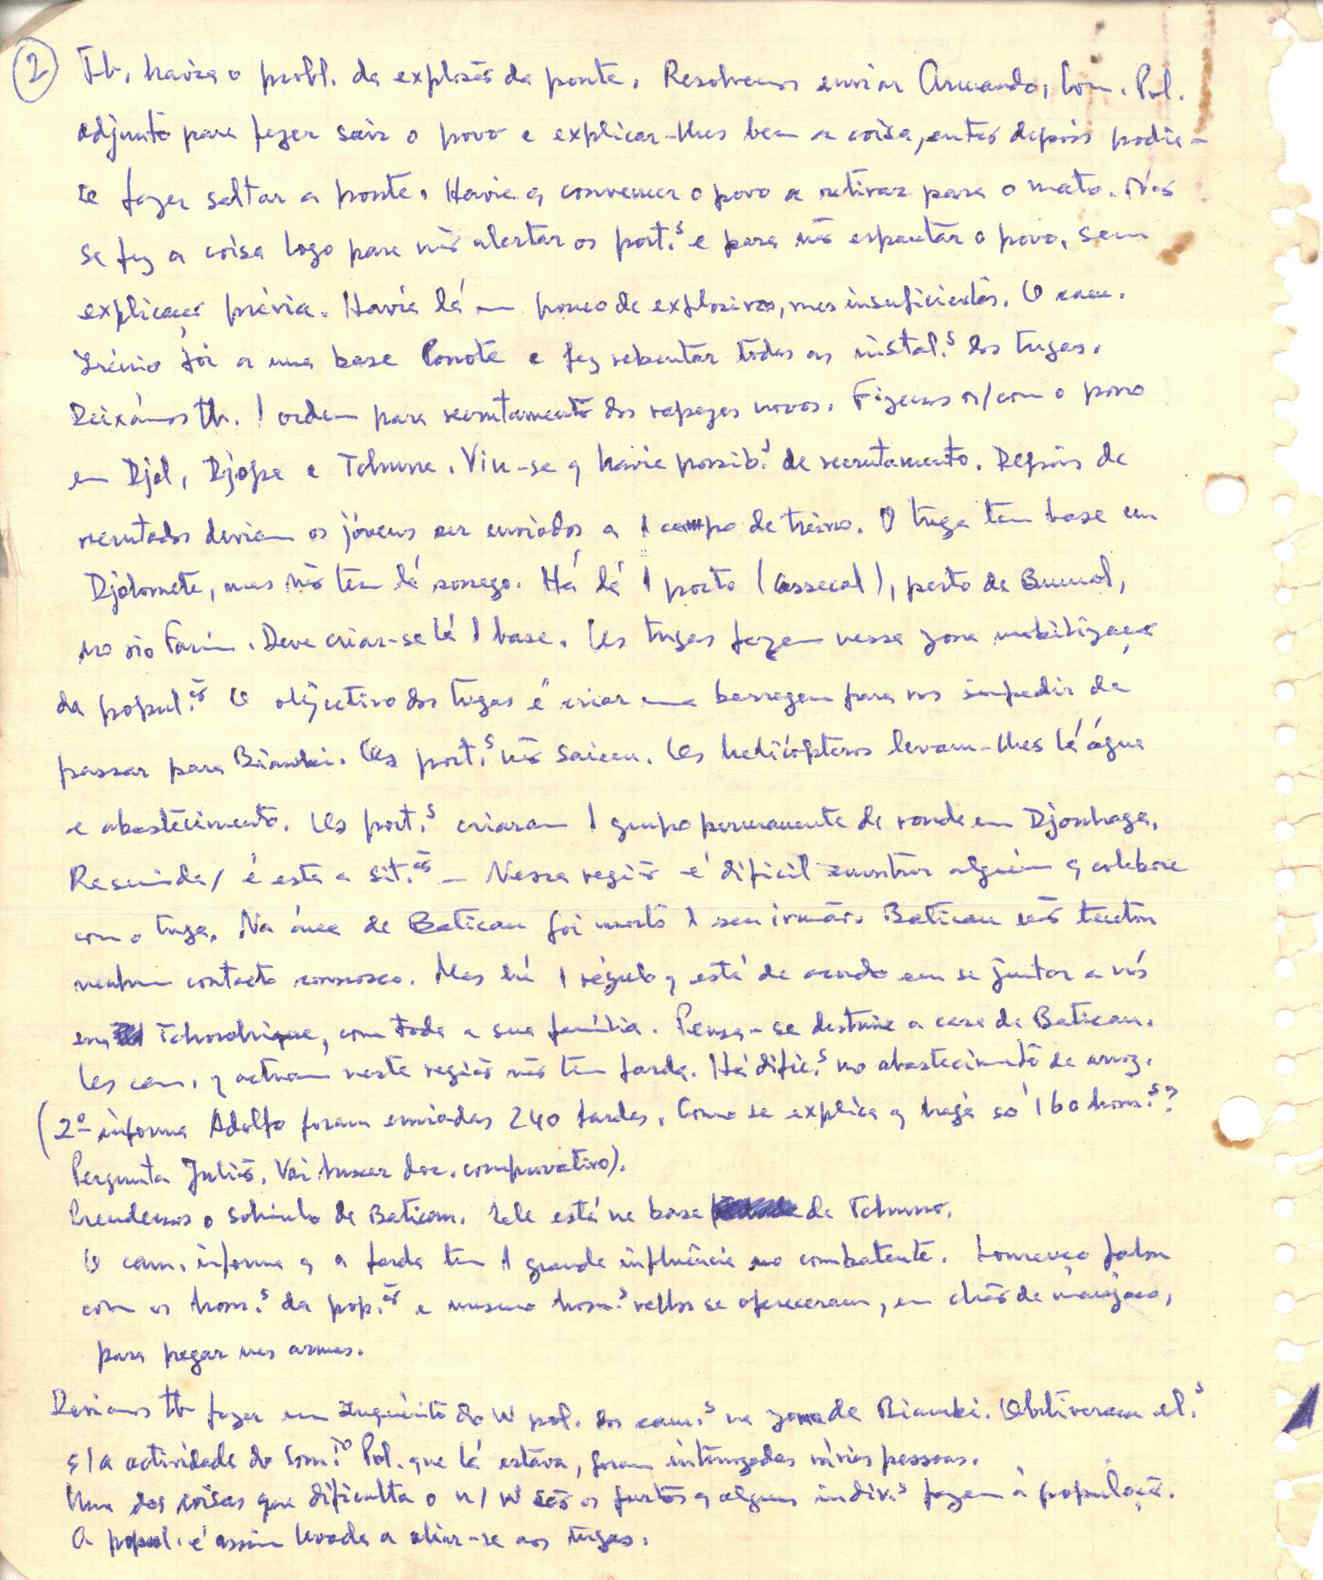 2 Tb. havia o probl. da explosão da ponte. Resolvemos enviar Armando, Com. Pol.
adjunto para fazer sair o povo e explicar-lhes bem a coisa, antes depois podia-
se fazer saltar a ponte. Havia q convencer o povo a retirar para o mato. Não
se fez a coisa logo para não alertar os port.s e para não espantar o povo, sem
explicação prévia. Havia lá um pouco de explosivos, mas insuficientes. O cam.
Irénio foi a uma base e fez rebentar todas as instal.s dos tugas.
Deixámos tb. 1 ordem para recrutamento dos rapazes novos. Fizemos r/com o povo
em Djol, Djope e Tchume. Viu-se q havia possib.s de recrutamento. Depois de
recrutados deviam os jóvens ser enviados a 1 campo de treino. O tuga tem base em
Djolomete, mas não têm lá sossego. Há lá 1 porto (Cassecal), perto de Bumal,
no rio Farim. Deve criar-se lá 1 base. Os tugas fazem nessa zona mobilização
da popul.ão O objectivo dos tugas é criar uma barragem para nos impedir de
passar para Biambi. Os port.s não saiem. Os helicópteros levam-lhes lá água
e abastecimento. Os port.s criaram 1 grupo permanente de ronda em
Resumida/ é esta a sit.ão - Nessa região é difícil encontrar alguém q colabore
com o tuga. Na área de Batican foi morto 1 seu irmão. Batican não tentou
nenhum contacto connosco. Mas há 1 régulo q está de acordo em se juntar a nós
em com toda a sua família. Pensa-se destruir a casa de Batican.
Os cam. q actuam nesta região não têm farda. Há dific.s no abastecimento de arroz.
(2º informa Adolfo foram enviadas 240 fardas. Como se explica q haja só 160 hom.s?
Pergunta Julião. Vai buscar doc. comprovativo).
Prendemos o sobrinho de Batican. Ele está na base de
O cam. informa q a farda tem 1 grande influência no combatente. Lourenço falou
com os hom.s da pop.ão e mesmo hom.s velhos se ofereceram, em chão de
para pegar nas armas.
Deviamos tb fazer um inquérito do W pol. dos cam.s na zona de Biambi. Obtiveram el.s
s/a actividade do Com.io Pol. que lá estava, foram interrogadas várias pessoas.
Uma das coisas que dificulta o n/ W são os furtos q alguns indiv.s fazem à população.
A popul. é assim levada a aliar-se aos tugas.